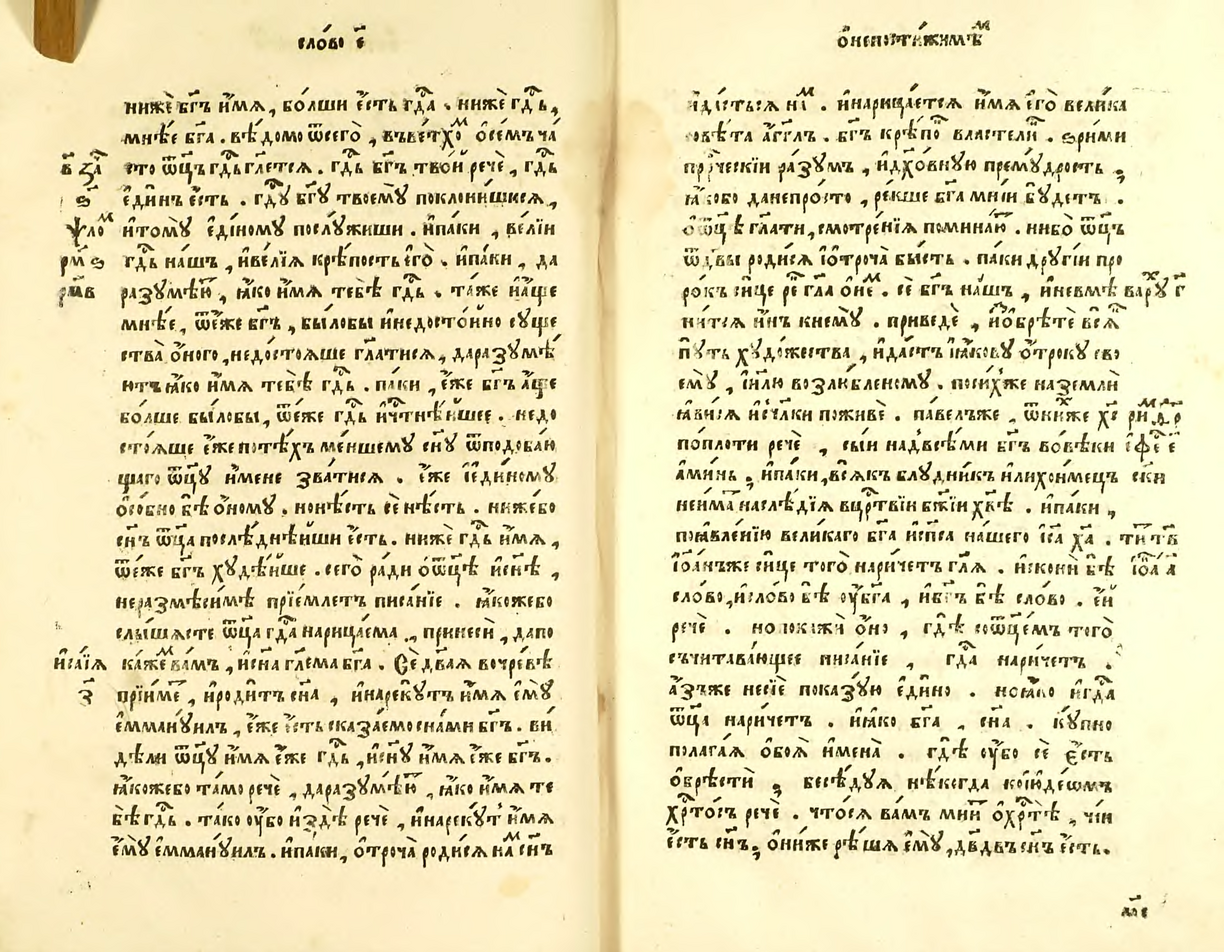 слово є҃
нижѐ бг҃ъ и҆́мѧ, бо́лши є҆́сть гдⷭ҇а . нижѐ гдⷭ҇ь,
мнѣ́е бг҃а . вѣ́домо ѿсего̀, въветхоⷨ ѻ҆се́мъ ча́
сто ѻ҆ц҃ъ гдⷭ҇ь гл҃етсѧ . гдⷭ҇ь бг҃ъ тво́й речѐ, гдⷭ҇ь
є҆ди́нъ є҆сть . гдⷭ҇ꙋ бг҃ꙋ твоемꙋ̀ поклони́шисѧ,
и҆томꙋ̀ є҆ди́номꙋ послꙋ́жиши . и҆па́ки, ве́лїи
гдⷭ҇ь на́шъ, и҆ве́лїѧ крѣ́пость є҆го̀ . и҆па́ки, да
разꙋмѣ́ютъ, ꙗ҆́ко и҆́мѧ тебѣ̀ гдⷭ҇ь . та́же и҆а҆́ще
мнѣ́е, ѿе҆́же бг҃ъ, бы́лобы и҆недосто́йно сꙋще
ства̀ о҆́ного, недосто́ѧше гл҃атисѧ, даразꙋмѣ́
ютъ ꙗ҆́ко и҆́мѧ тебѣ̀ гдⷭ҇ь . па́ки, є҆́же бг҃ъ а҆́ще
бо́лше бы́лобы, ѿе҆́же гдⷭ҇ь и҆чⷭ҇тнѣ́йшее . недо
сто́ѧше є҆́же потѣ́хъ ме́ншемꙋ сн҃ꙋ ѿподобаю
щаго ѻ҆ц҃ꙋ и҆́мене зва́тисѧ . є҆́же і҆еди́номꙋ
ѻ҆со́бно бѣ̀ о҆́номꙋ . нонѣ́сть сѐ нѣ́сть . ниже́бо
сн҃ъ ѻ҆ц҃а послѣ́днѣйши є҆́сть . нижѐ гдⷭ҇ь и҆́мѧ,
ѿе҆́же бг҃ъ хꙋдѣ́йше . сего̀ ра́ди ѻ҆ѻц҃ѣ̀ и҆сн҃ѣ̀,
неразмѣ́симѣ прїе́млетъ писа́нїе . ꙗ҆́коже бо
слы́шасте ѻ҆ц҃а гдⷭ҇а нарица́ема, принесѝ, дапо
каже́ⷨ ва́мъ, и҆сн҃а гл҃ема бг҃а . Сѐ два́ѧ вочре́вѣ
прїи́меⷮ, и҆роди́тъ сн҃а, и҆нарекꙋ́тъ и҆́мѧ є҆мꙋ̀
є҆ммануи́лъ, є҆́же є҆́сть сказа́емо сна́ми бг҃ъ . ви́
дѣли ѻ҆ц҃ꙋ и҆́мѧ є҆́же гдⷭ҇ь, и҆сн҃ꙋ и҆́мѧ є҆́же бг҃ъ .
ꙗ҆́коже бо та́мо речѐ, даразꙋмѣ́ютъ, ꙗ҆́ко и҆́мѧ те
бѣ̀ гдⷭ҇ь . та́ко ᲂу҆́бо и҆здѣ̀ речѐ, и҆нарекꙋ́тъ и҆́мѧ
є҆мꙋ̀ є҆ммануи́лъ . и҆па́ки, ѻ҆троча̀ роди́сѧ на́ⷨ сн҃ъ
в҃ за
ѕ҃
ѱало́ⷨ
рм҃ѕ
рм҃в
и҆са́їѧ
з҃
ѻ҆непости́жимѣⷨ
и҆да́стьсѧ на́ⷨ . и҆нарица́етсѧ и҆́мѧ є҆го̀ вели́ка
совѣ́та а҆́гг҃лъ . бг҃ъ крѣ́пок власте́ли . зри́ми
прⷪ҇ро́ческїи ра́зꙋмъ, и҆дх҃о́внꙋю премꙋ́дрость,
ꙗ҆́кобо данепро́сто, ре́кше бг҃а мни́си бꙋ́детъ .
ѻ҆ѻц҃ѣ̀ гл҃ати, смотре́нїѧ помина́ю . ни́бо ѻ҆ц҃ъ
ѿдв҃ы роди́сѧ і҆ѻтроча̀ бы́сть . па́ки дрꙋгі́и про
ро́къ си́це рѐ гл҃а ѻ҆не́ⷨ . сѐ бг҃ъ на́шъ, и҆невмѣ
ни́тсѧ и҆́нъ кнемꙋ̀ . приведѐ, и҆ѻ҆брѣ́те всѧ̀
пꙋ́ть хꙋдо́жества, и҆да́стъ і҆ꙗ҆́ковꙋ ѻ҆́трокꙋ сво
емꙋ̀, і҆и҆л҃ю возлю́бленомꙋ . поси́хже наземлѝ
ꙗ҆ви́сѧ и҆счл҃ки поживѐ . па́велъже, ѿни́хже хс҃
попло́ти речѐ, сы́и надвсѣ́ми бг҃ъ вовѣ́ки
а҆ми́нь, и҆па́ки, всѧ́къ блꙋ́дникъ и҆лихои́мецъ
неи́ма наслѣ́дїѧ вцрⷭ҇твїи бж҃їи хв҃ѣ . и҆па́ки,
поꙗвле́нїю вели́каго бг҃а и҆сп҃са на́шего і҆с҃а ха҃ .
і҆ѻа́нъже си́це того̀ нариче́тъ гл҃ѧ . и҆сконѝ бѣ̀
сло́во, и҆сло́во бѣ̀ ᲂу҆бг҃а, и҆бг҃ъ бѣ̀ сло́во . є҆́й
речѐ . но покажѝ о҆́но, гдѣ̀ соѻц҃е́мъ того̀
съчитава́ющее писа́нїе, гдⷭ҇а нариче́тъ .
а҆́зъже несїѐ показꙋ́ю є҆ди́но . ноꙗ҆́ко и҆гдⷭ҇а
ѻ҆ц҃а нариче́тъ . и҆ꙗ҆́ко бг҃а, сн҃а . кꙋ́пно
полага́ѧ ѻ҆́боѧ и҆мена̀ . гдѣ̀ ᲂу҆́бо сѐ є҆́сть
ѻ҆брѣстѝ, бесѣ́дꙋѧ нѣ́когда коі҆ꙋде́ѡмъ
хрⷭ҇то́съ речѐ . что́сѧ ва́мъ мни́тъ ѻ҆хрⷭ҇тѣ̀, чі́и
є҆́сть сн҃ъ, ѻ҆ни́же рѣ́шѧ є҆мꙋ̀, дв҃дъ сн҃ъ є҆́сть .
варꙋ́ⷯ г҃
ри́ⷨ
є҆фе є҃
ти́тꙋ
і҆ѻⷩ҇а҃ а҃